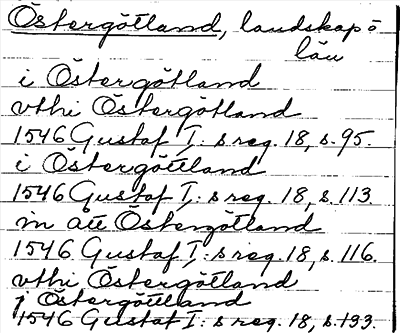 Östergötland, landskap o
län
i Östergötland
vthi Östergötland
1546 Gustaf I:s reg. 18, s. 95.
i Östergöttland
1546 Gustaf I:s reg. 18, s. 113
in ått Östergötland
1546 Gustaf I:s reg. 18, s. 116.
vthi Östergötland
j Östergöttland
1546 Gustaf I:s reg. 18, s. 193.